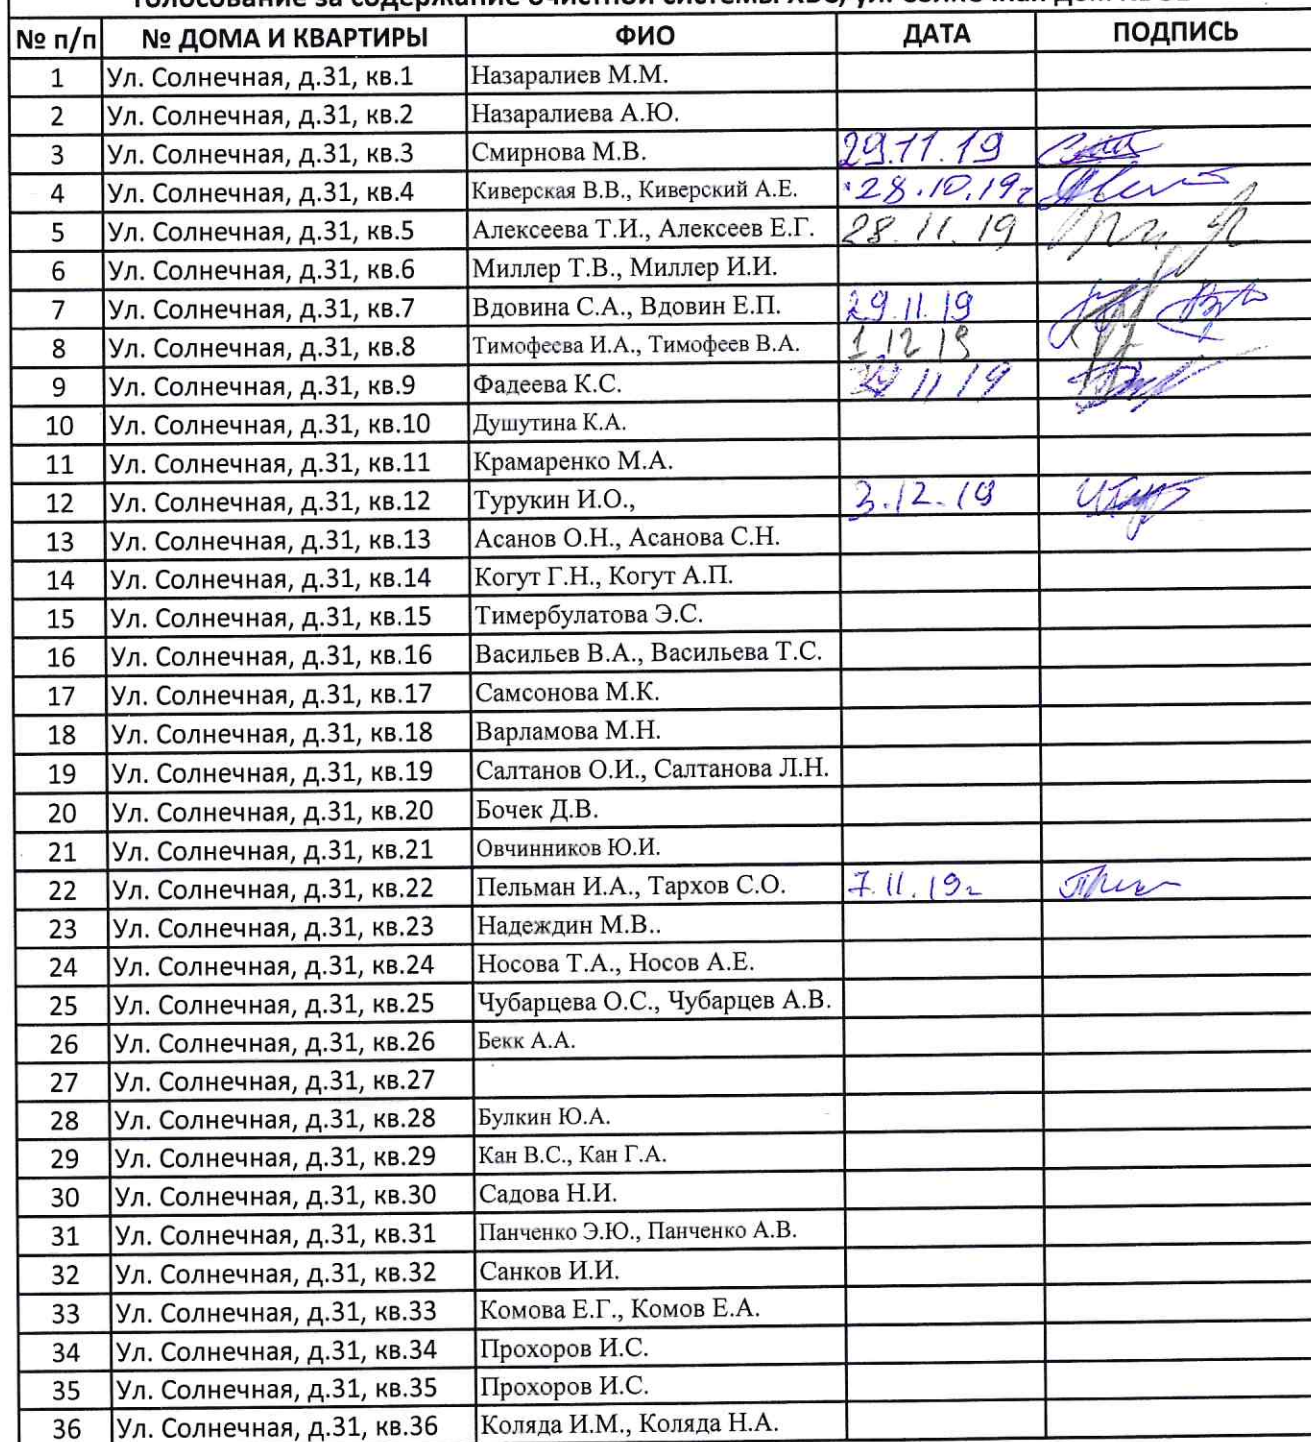 Голосование за содержание очистной системы ХВС, ул. Солнечная дом № 31
№ п/п № ДОМА И КВАРТИРЫ ФИО ДАТА ПОДПИСЬ
1 Ул. Солнечная, д.31, кв.1 Назаралиев М.М.
2 Ул. Солнечная, д.31, кв.2 Назаралиева А.Ю.
3 Ул. Солнечная, д.31, кв.3 Смирнова М.В. 29.11.19
4 Ул. Солнечная, д.31, кв.4 Киверская В.В., Киверский А.Е. 28.10.19г
5 Ул. Солнечная, д.31, кв.5 Алексеева Т.И., Алексеев Е.Г. 28.11.19
6 Ул. Солнечная, д.31, кв.6 Миллер Т.В., Миллер И.И.
7 Ул. Солнечная, д.31, кв.7 Вдовина С.А., Вдовин Е.П. 29.11.19
8 Ул. Солнечная, д.31, кв.8 Тимофеева И.А., Тимофеев В.А. 1 12 19
9 Ул. Солнечная, д.31, кв.9 Фадеева К.С. 11 19
10 Ул. Солнечная, д.31, кв.10 Душутина К.А.
11 Ул. Солнечная, д.31, кв.11 Крамаренко М.А.
12 Ул. Солнечная, д.31, кв.12 Турукин И.О., 3.12.19
13 Ул. Солнечная, д.31, кв.13 Асанов О.Н., Асанова С.Н.
14 Ул. Солнечная, д.31, кв.14 Когут Г.Н., Когут А.П.
15 Ул. Солнечная, д.31, кв.15 Тимербулатова Э.С.
16 Ул. Солнечная, д.31, кв.16 Васильев В.А., Васильева Т.С.
17 Ул. Солнечная, д.31, кв.17 Самсонова М.К.
18 Ул. Солнечная, д.31, кв.18 Варламова М.Н.
19 Ул. Солнечная, д.31, кв.19 Салтанов О.И., Салтанова Л.Н.
20 Ул. Солнечная, д.31, кв.20 Бочек Д.В.
21 Ул. Солнечная, д.31, кв.21 Овчинников Ю.И.
22 Ул. Солнечная, д.31, кв.22 Пельман И.А., Тархов С.О. 7.11.19г
23 Ул. Солнечная, д.31, кв.23 Надеждин М.В..
24 Ул. Солнечная, д.31, кв.24 Носова Т.А., Носов А.Е.
25 Ул. Солнечная, д.31, кв.25 Чубарцева О.С., Чубарцев А.В.
26 Ул. Солнечная, д.31, кв.26 Бекк А.А.
27 Ул. Солнечная, д.31, кв.27
28 Ул. Солнечная, д.31, кв.28 Булкин Ю.А.
29 Ул. Солнечная, д.31, кв.29 Кан В.С., Кан Г.А.
30 Ул. Солнечная, д.31, кв.30 Садова Н.И.
31 Ул. Солнечная, д.31, кв.31 Панченко Э.Ю., Панченко А.В.
32 Ул. Солнечная, д.31, кв.32 Санков И.И.
33 Ул. Солнечная, д.31, кв.33 Комова Е.Г., Комов Е.А.
34 Ул. Солнечная, д.31, кв.34 Прохоров И.С.
35 Ул. Солнечная, д.31, кв.35 Прохоров И.С.
36 Ул. Солнечная, д.31, кв.36 Коляда И.М., Коляда Н.А.